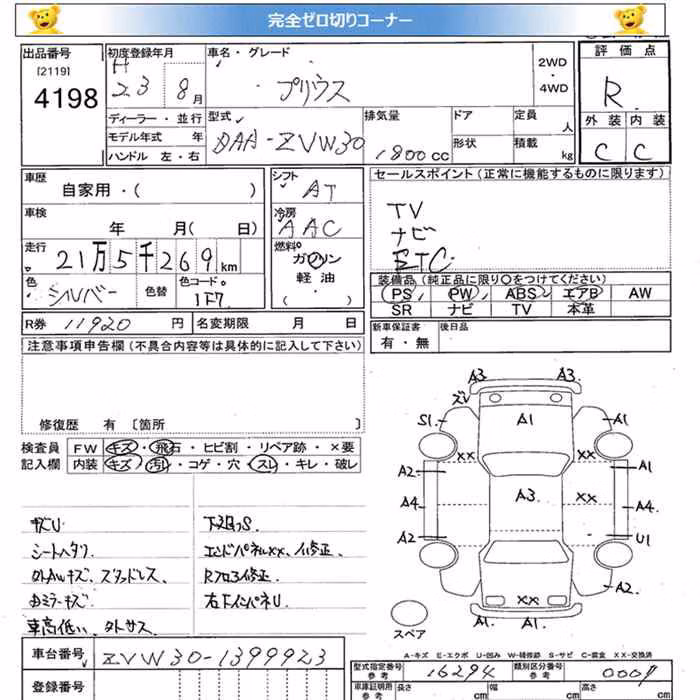 完全ゼロ切りコーナー
出品番号
[2119]
4198
初度登録年月
H
23 8月
車名・グレード
プリウス
2WD
・
4WD
評価点
R
外装 内装
C C
ディーラー・並行
モデル年式 年
ハンドル 左・右
型式
DAA-ZVW30
排気量
1800cc
ドア
形状
定員
人
積載
kg
車歴
自家用・( )
車検
年 月( 日)
走行
21万5千269km
色
シルバー
色替
色コード
1F7
シフト
AT
冷房
AAC
燃料
ガソリン
軽油
( )
セールスポイント(正常に機能するものに限ります)
TV
ナビ
ETC
装備品(純正品に限り〇をつけてください)
PS PW ABS エアB AW
SR ナビ TV 本革
R券 11920 円
名変期限 月 日
新車保証書
有・無
後日品
注意事項申告欄(不具合内容等は具体的に記入して下さい)
修復歴 有〔箇所 〕
検査員
記入欄
FW キズ・飛石・ヒビ割・リペア跡・×要
内装 キズ・汚れ・コゲ・穴・スレ・キレ・破レ
シートヘタリ
外AWキズ、スタッドレス、
ミラーキズ
車高低い、外サス
エンドパネルXX、修正、
Rフロア修正、
右インパネU
A3 A3
ズレ
S1 A1 A1
XX XX
A2 A1
A4 A3 XX A4
A2 U1
A2
XX
A1 A1
A1
スペア
A-キズ E-エクボ U-凹み W-補修跡 S-サビ C-腐食 XX-交換済
車台番号
ZVW30-1399923
登録番号
型式指定番号
参考
16294
類別区分番号
参考
0009
車庫証明用
参考
長さ cm 幅 cm 高さ cm